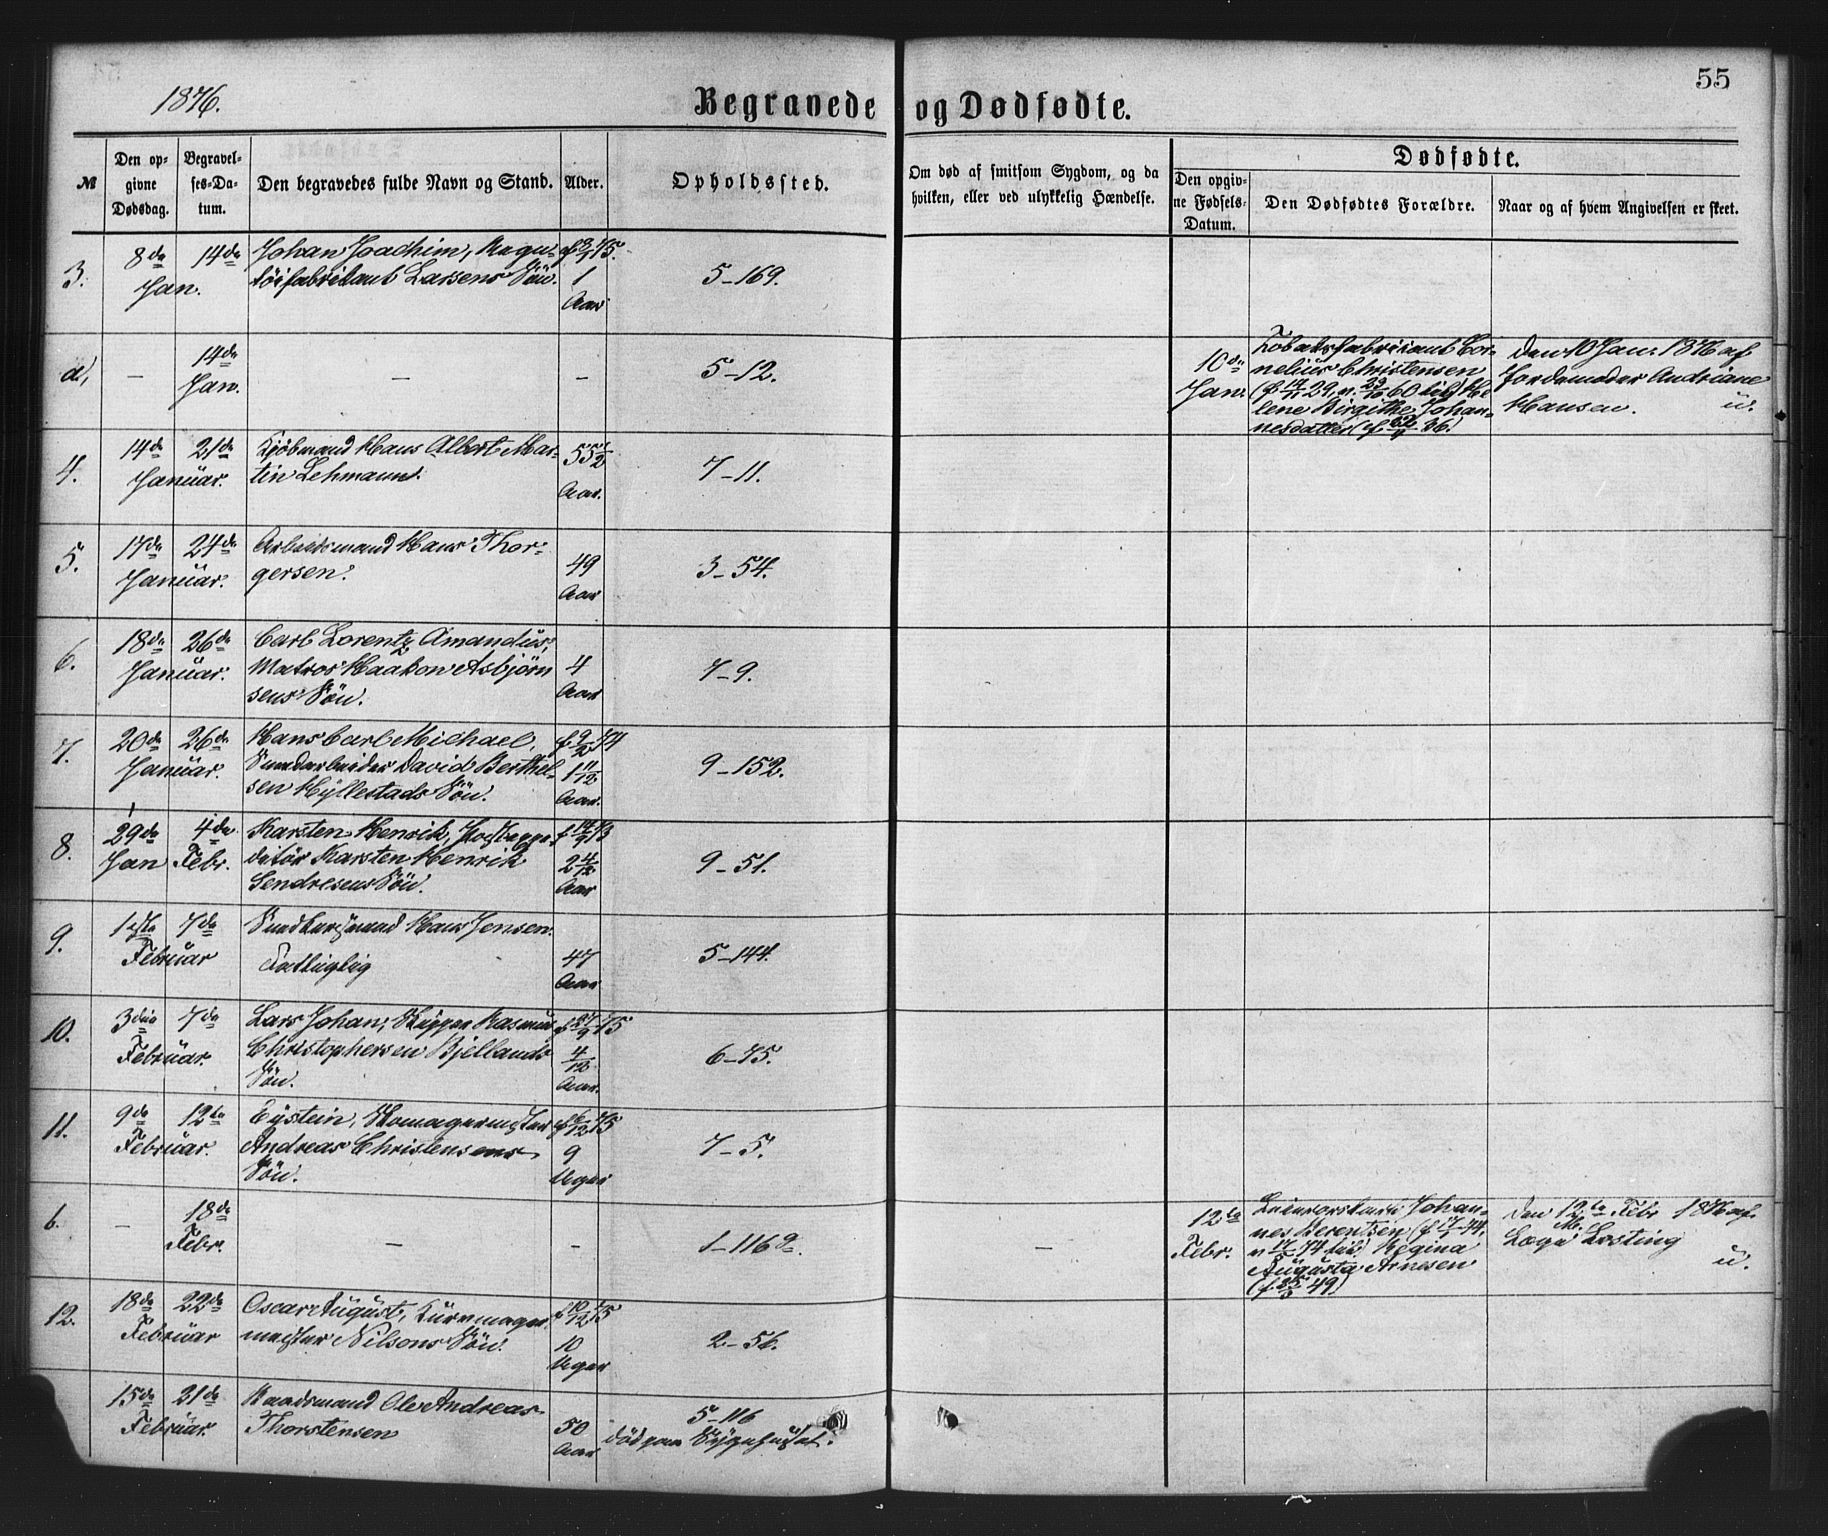 55
1876.
Begravede og Dødfødte.
№
Den opgivne Dødsdag.
Begravelses-Datum.
Den begravedes fulde Navn og Stand.
Alder.
Opholdssted.
Om død af smitsom Sygdom, og da hvilken, eller ved ulykkelig Hændelse.
Dødfødte.
Den opgivne Fødsels-Datum.
Den Dødfødtes Forældre.
Naar og af hvem Angivelsen er skeet.
3. 8de 14de Johan Joachim,
Jan. Larsens Søn. 1 Aar 5-169.
a, — 14de Jan. — — 5-12.
10de Jan. Tobaksfabrikant Cor-
nelius Christensen
lene Birgithe Johan-
nesdatter
den 10 Jan. 1876 af
Jordemoder Andriane
Hansen. u.
4. 14de 21de Kjøbmand Hans Albert Mar-
Januar. tin Lehmann. 55½ Aar. 7-11.
5. 17de 24de Arbeidsmand Hans Thor-
Januar. gersen. 49 Aar 3-54.
6. 18de 26de Carl Lorentz Amandus,
Januar. Matros Haakon Asbjørn
sens Søn. 4 Aar 7-9.
7. 20de 26de Hans Carl Michael, f. 9/2 74
Januar. David Berthel-
sen Hyllestads Søn. 1 11/12 Aar. 9-152.
8. 29de 4de Karsten Henrik,
Jan Febr. Karsten Henrik
Søn. 2 4/12 Aar 9-51.
9. 1ste 7de Hans Jensen.
Februar Fattiglig 47 Aar 5-144.
10. 3die 7de Lars Johan, Skipper Rasmus
Februar. Christophersen Bjellands
Søn. 4/12 Aar. 6-75.
11. 9de 12te Eystein,
Februar. Andreas Christensens
Søn. 9 Uger 7-5.
b. — 18de Febr. — — 1-116 —
12te Febr. Johan-
nes Berentsen
Regina
Augusta Arnesen
Den 12te Febr 1876 af
Læge Losting
u.
12. 18de 22de Oscar August,
Februar Nilsons Søn. 10 Uger 2-56.
15de 21de Ole Andreas
Februar. Thorstensen 50 Aar 5-116
død paa Sygehuset.